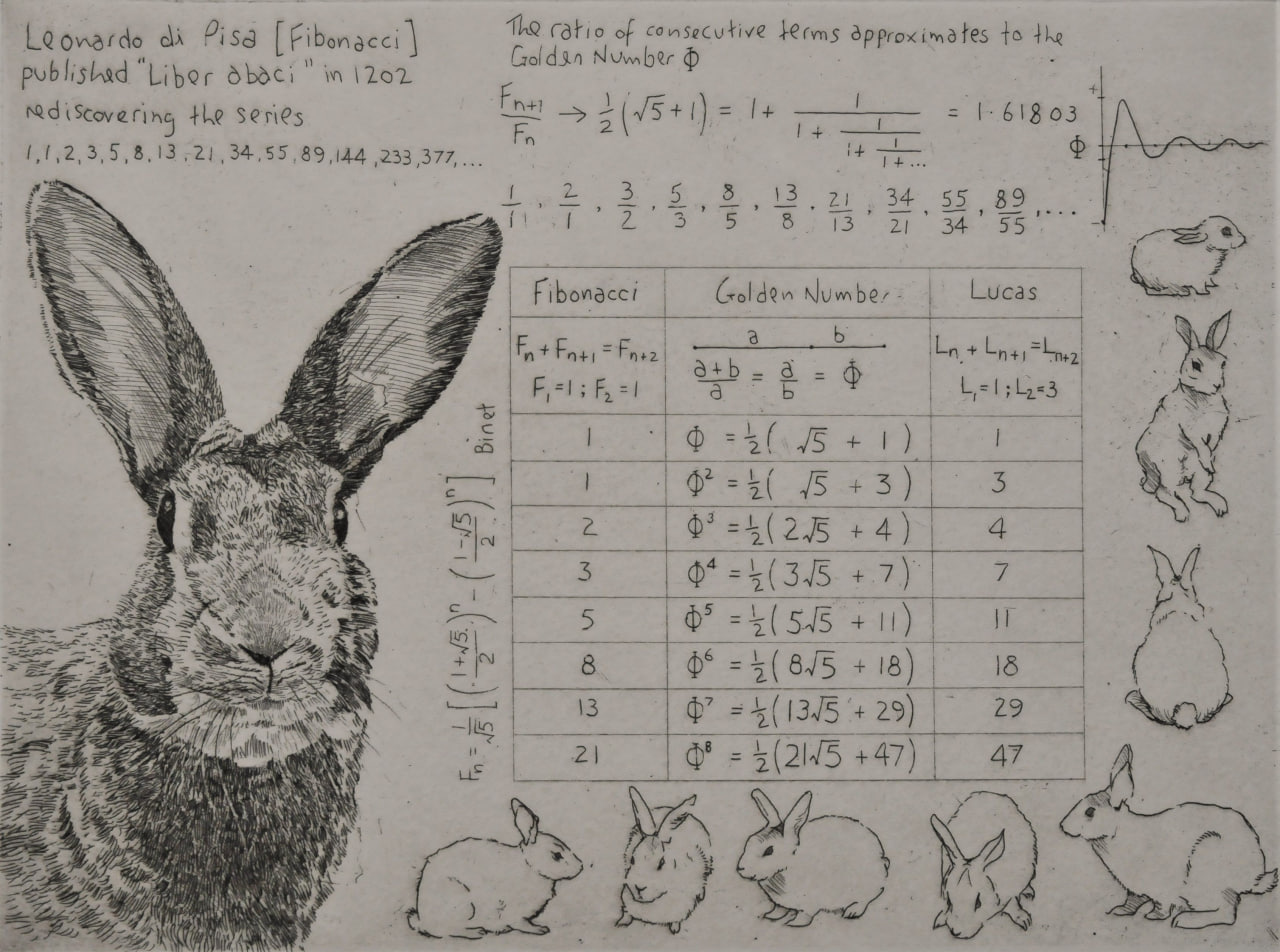 Leonardo di Pisa [Fibonacci]
published "Liber abaci" in 1202
rediscovering the series
1,1,2,3,5,8,13,21,34,55,89,144,233,377,...
The ratio of consecutive terms approximates to the
Golden Number Φ
Fn+1/Fn → 1/2(√5+1) = 1+ 1/(1+ 1/(1+ 1/(1+...))) = 1·61803
+
Φ
-
1/1, 2/1, 3/2, 5/3, 8/5, 13/8, 21/13, 34/21, 55/34, 89/55, ...
Fibonacci Golden Number Lucas
Fn + Fn+1 = Fn+2 a b Ln + Ln+1 = Ln+2
F1=1; F2=1 (a+b)/a = a/b = Φ L1=1; L2=3
1 Φ = 1/2( √5 + 1 ) 1
1 Φ² = 1/2( √5 + 3 ) 3
2 Φ³ = 1/2( 2√5 + 4 ) 4
3 Φ⁴ = 1/2( 3√5 + 7 ) 7
5 Φ⁵ = 1/2( 5√5 + 11 ) 11
8 Φ⁶ = 1/2( 8√5 + 18 ) 18
13 Φ⁷ = 1/2( 13√5 + 29 ) 29
21 Φ⁸ = 1/2( 21√5 + 47 ) 47
Fn = 1/√5 [((1+√5)/2)ⁿ - ((1-√5)/2)ⁿ] Binet